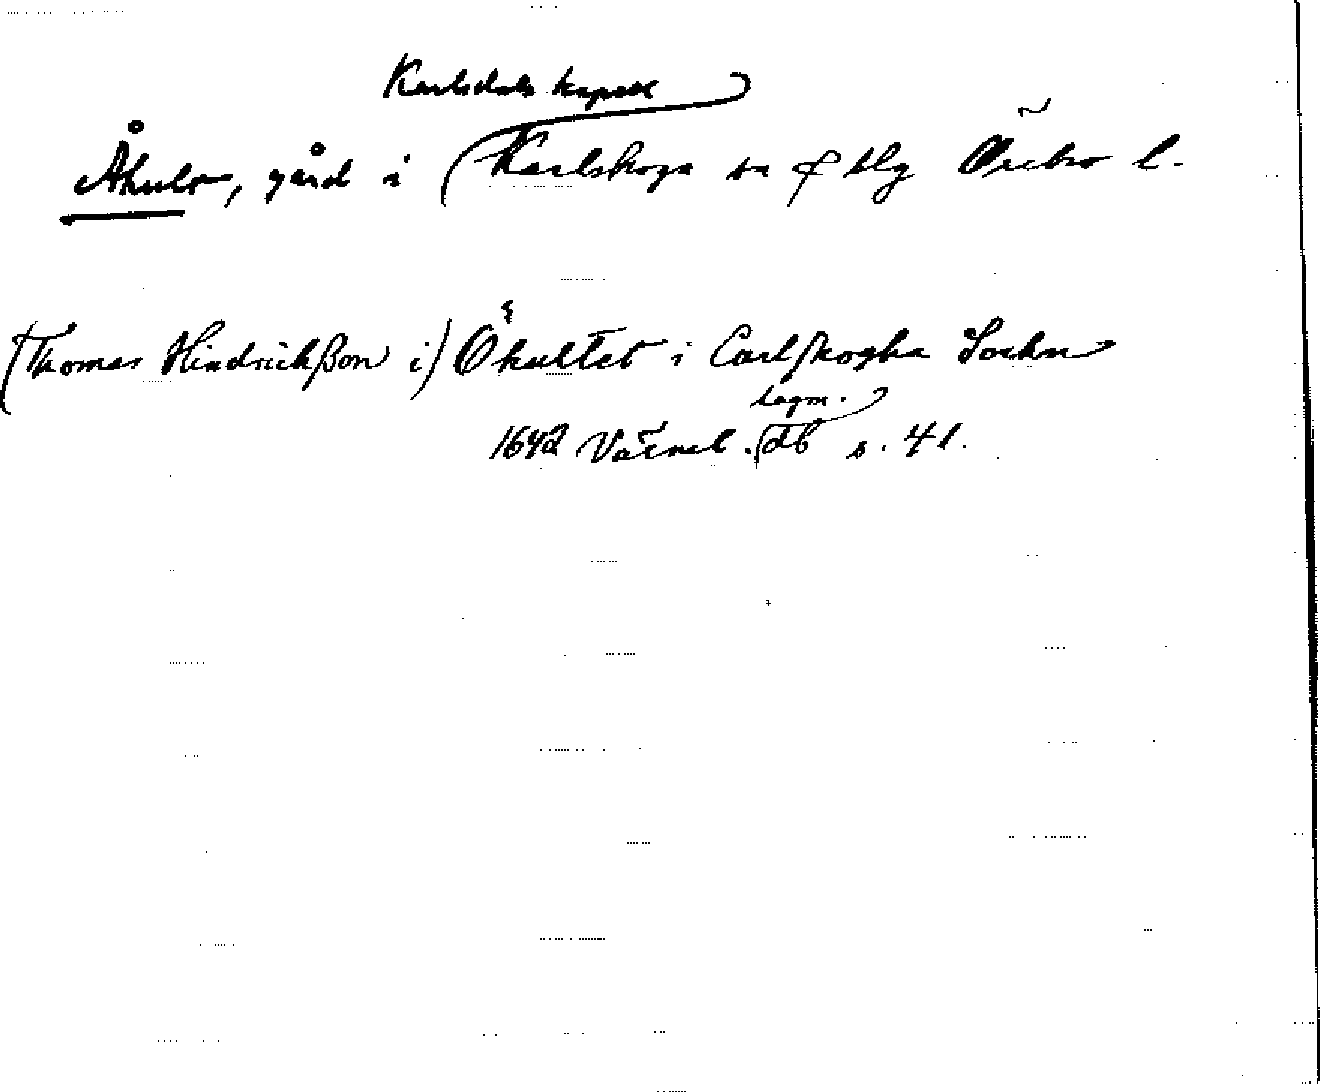 Karlsdals kapell
Åhult, gård i Karlskoga sn o hg Örebro l.
(Thomas Hindrichßon i) Åhultet i Carlskogha Sochn
lagm.
1642 Värml. db s. 41.